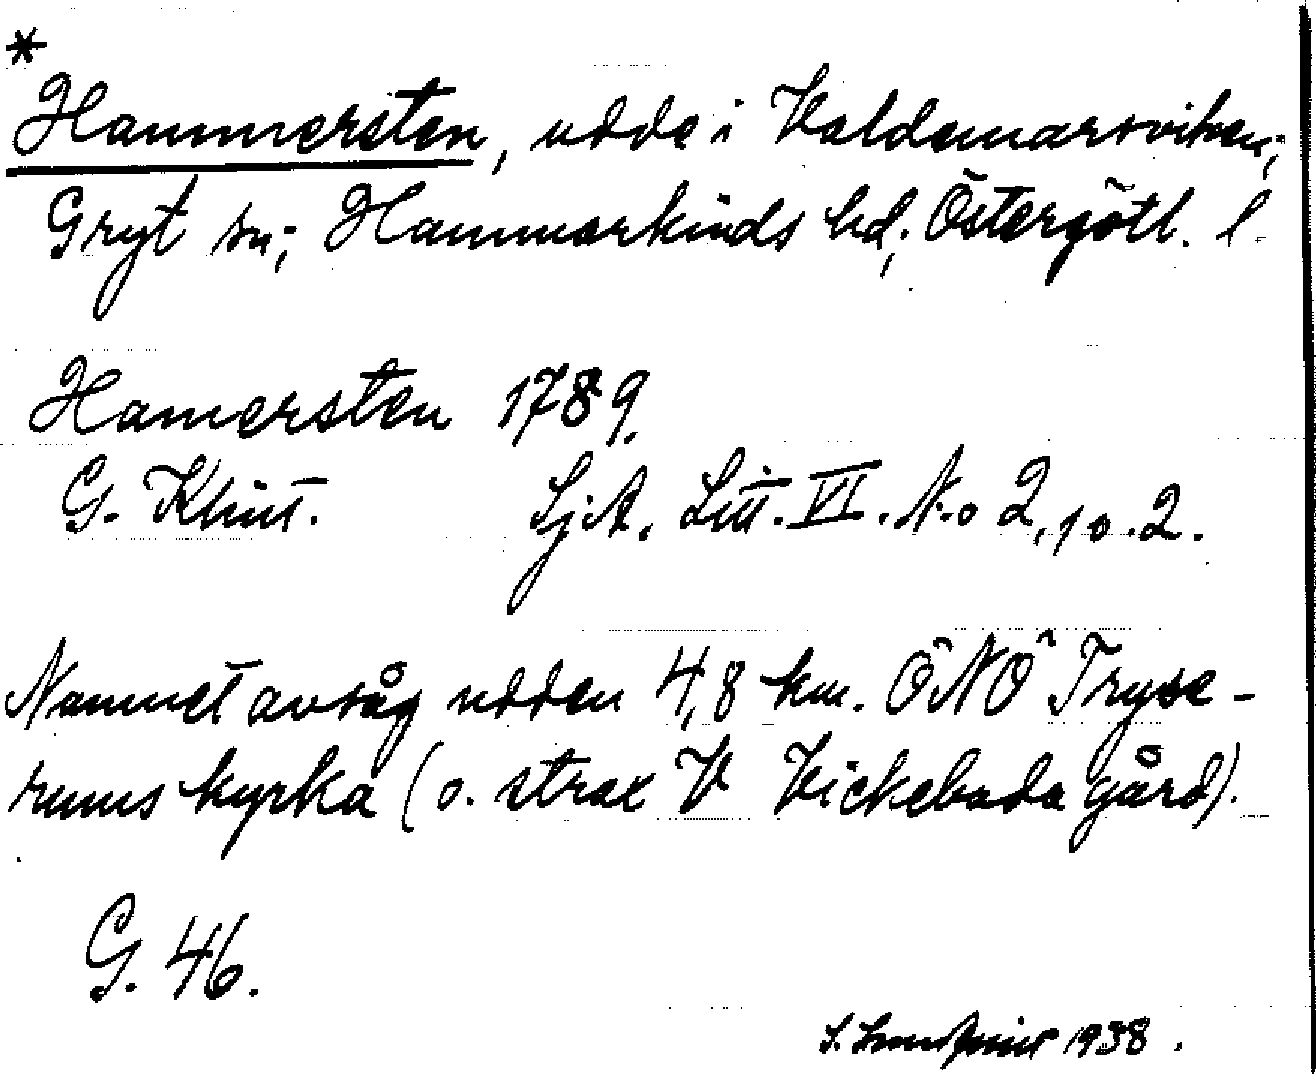 *
Hammersten, udde i Valdemarsviken;
Gryt sn; Hammarkinds hd; Östergötl. l.
Hamersten 1789.
G. Klint. SjA. Litt. VI. No 2, 10.2.
Namnet avsåg udden 4,8 km. ÖNÖ Tryse-
rums kyrka (o. strax V Vickebada gård).
G. 46.
S. 1938.